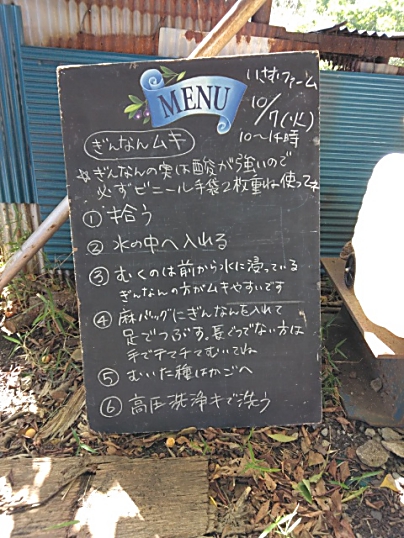 MENU
いさすファーム
10/7(火)
10〜14時
ぎんなんムキ
☆ぎんなんの実は酸が強いので
必ずビニール手袋2枚重ね使ってネ
① 拾う
② 水の中へ入れる
③ むくのは前から水に浸っている
ぎんなんの方がムキやすいです
④ 麻バッグにぎんなんを入れて
足でつぶす。長ぐつでない方は
手でテマチマむいてね
⑤ むいた種はかごへ
⑥ 高圧洗浄キで洗う